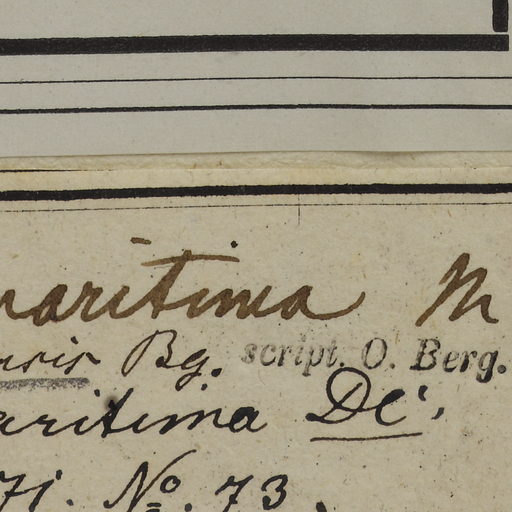 maritima M
ensis Bg. script. O. Berg.
aritima DC.
71. No. 73.